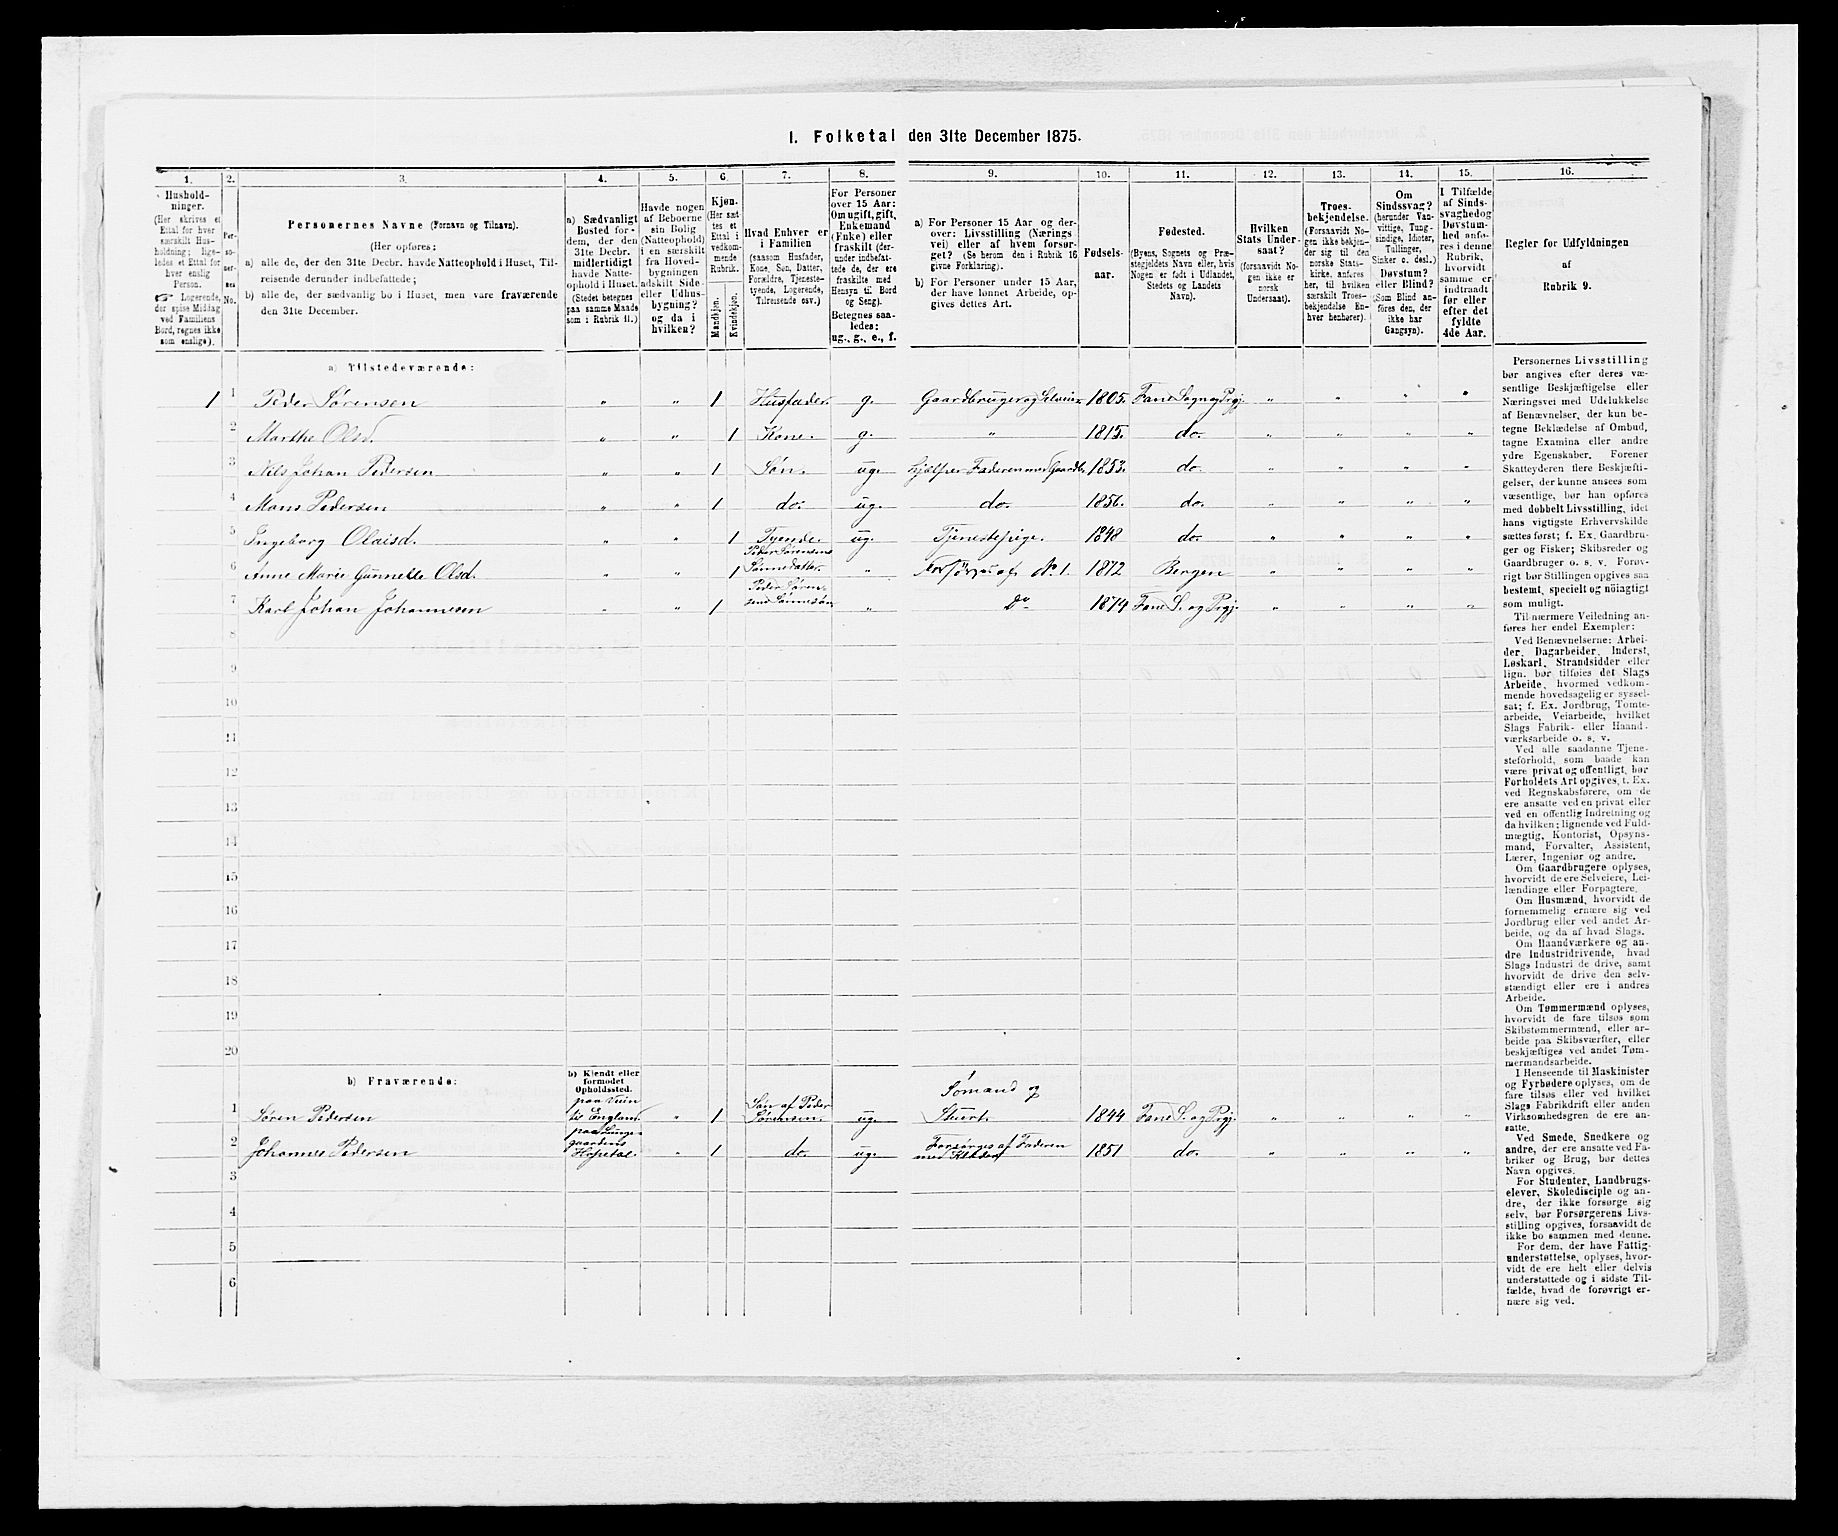 1. Folketal den 31te December 1875.
1. 2. 3. 4. 5. 6. 7. 8. 9. 10. 11. 12. 13. 14. 15. 16.
Hushold-
ninger.
(Her skrives et
Ettal for hver
særskilt Hus-
holdning; lige-
ledes et Ettal for
hver enslig
Person.
☞ Logerende,
der spise Middag
ved Familiens
Bord, regnes ikke
som enslige).
Per-
so-
ner-
nes
No.
Personernes Navne (Fornavn og Tilnavn).
(Her opføres:
a) alle de, der den 31te Decbr. havde Natteophold i Huset, Til-
reisende derunder indbefattede;
b) alle de, der sædvanlig bo i Huset, men vare fraværende
den 31te December.
a) Sædvanligt
Bosted for-
dem, der den
31te Decbr.
midlertidigt
havde Natte-
ophold i Huset.
(Stedet betegnes
paa samme Maade
som i Rubrik 11.)
Havde nogen
af Beboerne
sin Bolig
(Natteophold)
i en særskilt
fra Hoved-
bygningen
adskilt Side-
eller Udhus-
bygning?
og da i
hvilken?
Kjøn.
(Her sæt-
tes et
Ettal i
vedkom-
mende
Rubrik.
Mandkjøn.
Kvindekjøn.
Hvad Enhver er
i Familien
(saasom Husfader,
Kone, Søn, Datter,
Forældre, Tjeneste-
tyende, Logerende,
Tilreisende osv.)
For Personer
over 15 Aar:
Om ugift, gift,
Enkemand
(Enke) eller
fraskilt (der-
under indbefat-
tede de, der ere
fraskilte med
Hensyn til Bord
og Seng).
Betegnes saa-
ledes:
ug., g., e., f.
a) For Personer 15 Aar og der-
over: Livsstilling (Nærings
vei) eller af hvem forsør-
get? (Se herom den i Rubrik 16
givne Forklaring).
b) For Personer under 15 Aar,
der have lønnet Arbeide, op-
gives dettes Art.
Fødsels-
aar.
Fødested.
(Byens, Sognets og Præ-
stegjeldets Navn eller, hvis
Nogen er født i Udlandet,
Stedets og Landets
Navn).
Hvilken
Stats Under-
saat?
(forsaavidt No-
gen ikke er
norsk
Undersaat).
Troes-
bekjendelse.
(Forsaavidt No-
gen ikke bekjen-
der sig til den
norske Stats-
kirke, anføres
her, til hvilken
særskilt Troes-
bekjendelse En-
hver henhører).
Om
Sindssvag?
(herunder Van-
vittige, Tung-
sindige, Idioter,
Tullinger,
Sinker o. desl.)
Døvstum?
eller Blind?
(Som Blind an-
føres den, der
ikke har
Gangsyn).
I Tilfælde
af Sinds-
svaghed og
Døvstum-
hed anfø-
res i denne
Rubrik,
hvorvidt
samme er
indtraadt
før eller
efter det
fyldte
4de Aar.
Regler for Udfyldningen
af
Rubrik 9.
a) Tilstedeværende:
1 1 Peder Sørensen " " 1 Husfader. g. Gaardbruger og Selveier 1805. Fane Sogn og Prgj. " " " "
2 Marthe Olsd. " " 1 Kone. g. " 1815. do. " " " "
3 Nils Johan Pedersen " " 1 Søn. ug. hjælper Faderen med Gaardb. 1853. do. " " " "
4 Mons Pedersen " " 1 do. ug. do. 1856. do. " " " "
5 Ingeborg Olaisd. " " 1 Tyende. ug. Tjenestepige. 1848 do. " " " "
6 Anne Marie Gunnelle Olsd. " " 1 Peder Sørensens Sønnedatter. " Forsørges af No 1. 1872 Bergen " " " "
7 Karl Johan Johannesen " " 1 Peder Sørensens Sønnesøn " Do 1874 Fane S. og Prgj. " " " "
8
9
10
11
12
13
14
15
16
17
18
19
20
b) Fraværende:
b) Kjendt eller
formodet
Opholdssted.
1 Søren Pedersen paa Veien til England. " 1 Søn af Peder Sørensen. ug. Sømand og Stuert. 1844 Fane S. og Prgj. " " " "
2 Johannes Pedersen paa Lunge-gaardens Hospital. " 1 do. ug. Forsørges af Faderen med Klæder 1851 do. " " " "
3
4
5
6
Personernes Livsstilling
bør angives efter deres væ-
sentlige Beskjæftigelse eller
Næringsvei med Udelukkelse
af Benævnelser, der kun be-
tegne Beklædelse af Ombud,
tagne Examina eller andre
ydre Egenskaber. Forener
Skatteyderen flere Beskjæfti-
gelser, der kunne ansees som
væsentlige, bør han opføres
med dobbelt Livsstilling, idet
hans vigtigste Erhvervskilde
sættes først; f. Ex. Gaardbru-
ger og Fisker; Skibsreder og
Gaardbruger o. s. v. Forøv-
rigt bør Stillingen opgives saa
bestemt, specielt og nöiagtigt
som muligt.
Til nærmere Veiledning an-
føres her endel Exempler:
Ved Benævnelserne: Arbei-
der, Dagarbeider, Inderst,
Løskarl, Strandsidder eller
lign. bør tilføies det Slags
Arbeide, hvormed vedkom-
mende hovedsagelig er syssel-
sat; f. Ex. Jordbrug, Tomte-
arbeide, Veiarbeide, hvilket
Slags Fabrik- eller Haand-
værksarbeide o. s. v.
Ved alle saadanne Tjene-
steforhold, som baade kan
være privat og offentligt, bør
Forholdets Art opgives, t. Ex.
ved Regnskabsførere, om de
ere ansatte ved en privat eller
ved en offentlig Indretning og
da hvilken; lignende ved Fuld-
mægtig, Kontorist, Opsyns-
mand, Forvalter, Assistent,
Lærer, Ingeniør og andre.
Om Gaardbrugere oplyses,
hvorvidt de ere Selveiere, Lei-
lændinge eller Forpagtere.
Om Husmænd, hvorvidt de
fornemmelig ernære sig ved
Jordbrug eller ved andet Ar-
beide, og da af hvad Slags.
Om Haandværkere og an-
dre Industridrivende, hvad
Slags Industri de drive, samt
hvorvidt de drive den selv-
stændigt eller ere i andres
Arbeide.
Om Tømmermænd oplyses,
hvorvidt de fare tilsøs som
Skibstømmermænd, eller ar-
beide paa Skibsværfter, eller
beskjæftiges ved andet Tøm-
mermandsarbeide.
I Henseende til Maskinister
og Fyrbødere oplyses, om de
fare tilsøs eller ved hvilket
Slags Fabrikdrift eller anden
Virksomhedsgren de ere an-
satte.
Ved Smede, Snedkere og
andre, der ere ansatte ved Fa-
briker og Brug, bør dettes
Navn opgives.
For Studenter, Landbrugs-
elever, Skoledisciple og an-
dre, der ikke forsørge sig
selv, bør Forsørgerens Livs-
stilling opgives, forsaavidt de
ikke bo sammen med denne.
For dem, der have Fattig-
understøttelse, oplyses, hvor-
vidt de ere helt eller delvis
understøttede og i sidste Til-
fælde, hvad de forøvrigt er-
nære sig ved.